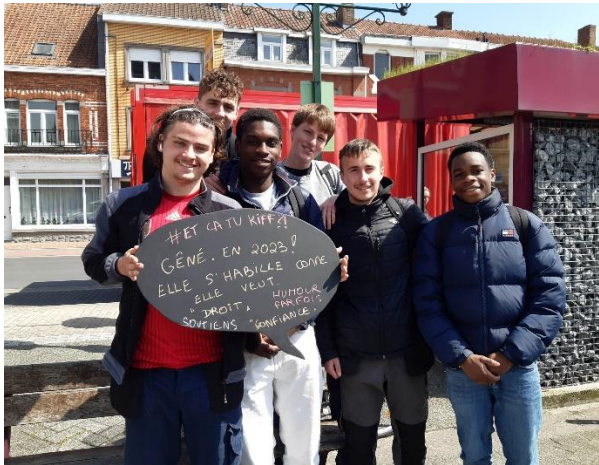 #ET ÇA TU KIFF?!
GÊNÉ. EN 2023!
ELLE S'HABILLE COMME
ELLE VEUT.
"DROIT", HUMOUR
PARFOIS
SOUTIENS "CONFIANCE.
TOMMY